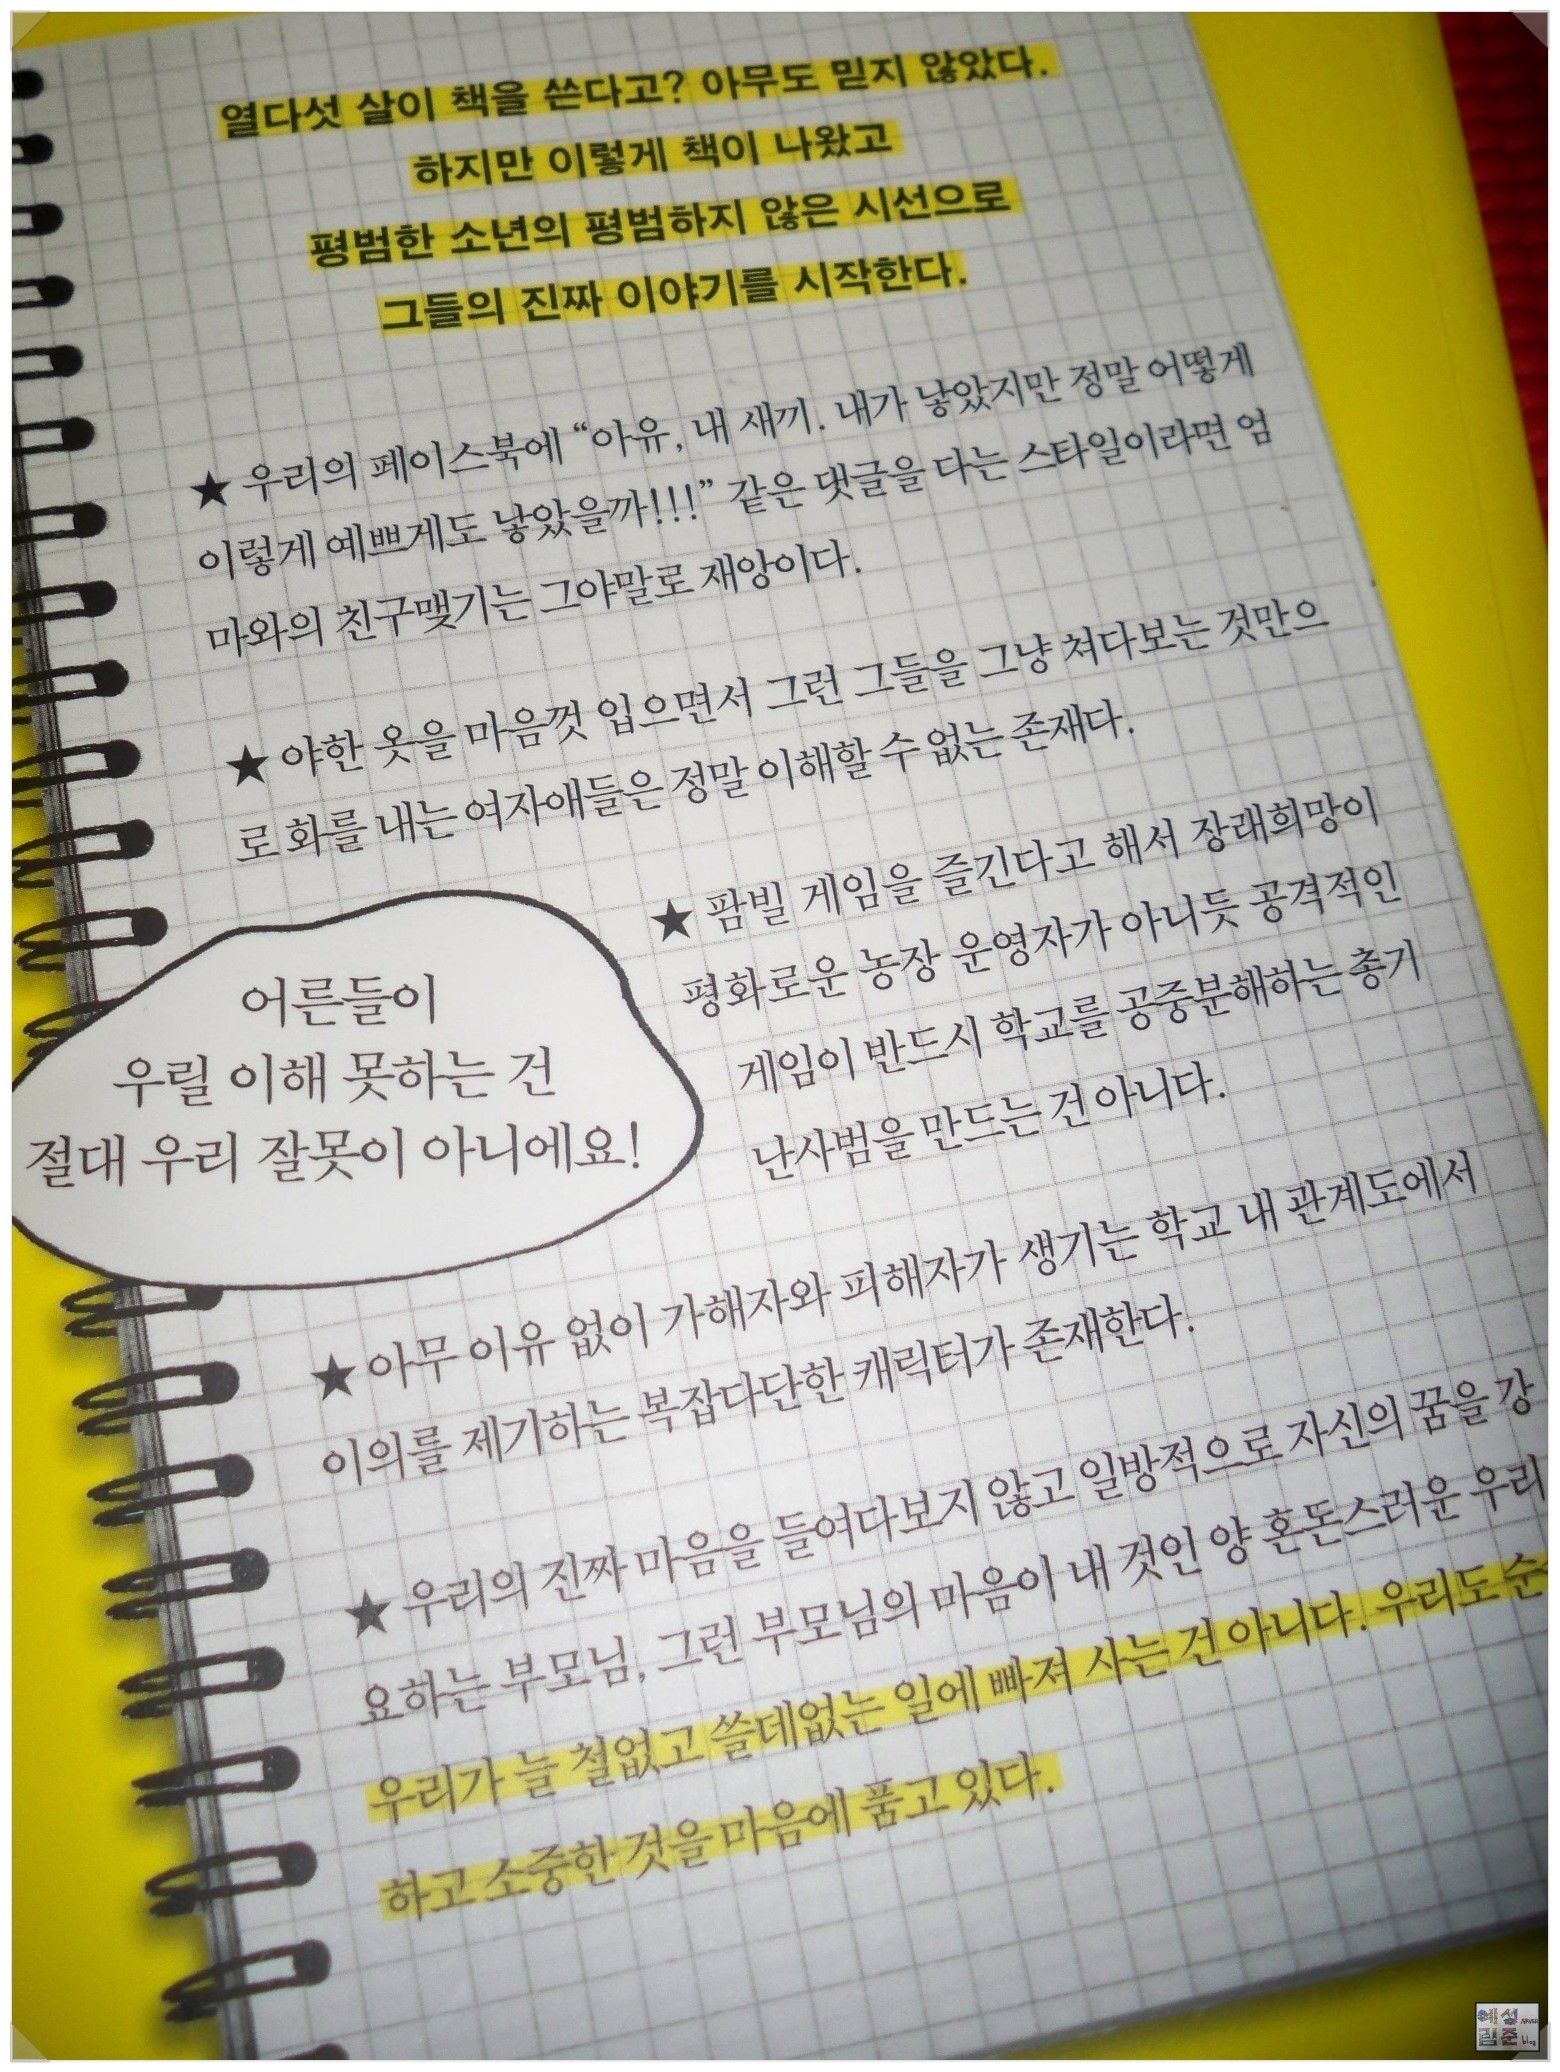 열다섯 살이 책을 쓴다고? 아무도 믿지 않았다.
하지만 이렇게 책이 나왔고
평범한 소년의 평범하지 않은 시선으로
그들의 진짜 이야기를 시작한다.
★ 우리의 페이스북에 “아유, 내 새끼. 내가 낳았지만 정말 어떻게
이렇게 예쁘게도 낳았을까!!!” 같은 댓글을 다는 스타일이라면 엄
마와의 친구맺기는 그야말로 재앙이다.
★ 야한 옷을 마음껏 입으면서 그런 그들을 그냥 쳐다보는 것만으
로 화를 내는 여자애들은 정말 이해할 수 없는 존재다.
★ 팜빌 게임을 즐긴다고 해서 장래희망이
평화로운 농장 운영자가 아니듯 공격적인
게임이 반드시 학교를 공중분해하는 총기
난사범을 만드는 건 아니다.
어른들이
우릴 이해 못하는 건
절대 우리 잘못이 아니에요!
★ 아무 이유 없이 가해자와 피해자가 생기는 학교 내 관계도에서
이의를 제기하는 복잡다단한 캐릭터가 존재한다.
★ 우리의 진짜 마음을 들여다보지 않고 일방적으로 자신의 꿈을 강
요하는 부모님, 그런 부모님의 마음이 내 것인 양 혼돈스러운 우리
우리가 늘 철없고 쓸데없는 일에 빠져 사는 건 아니다. 우리도 순
하고 소중한 것을 마음에 품고 있다.